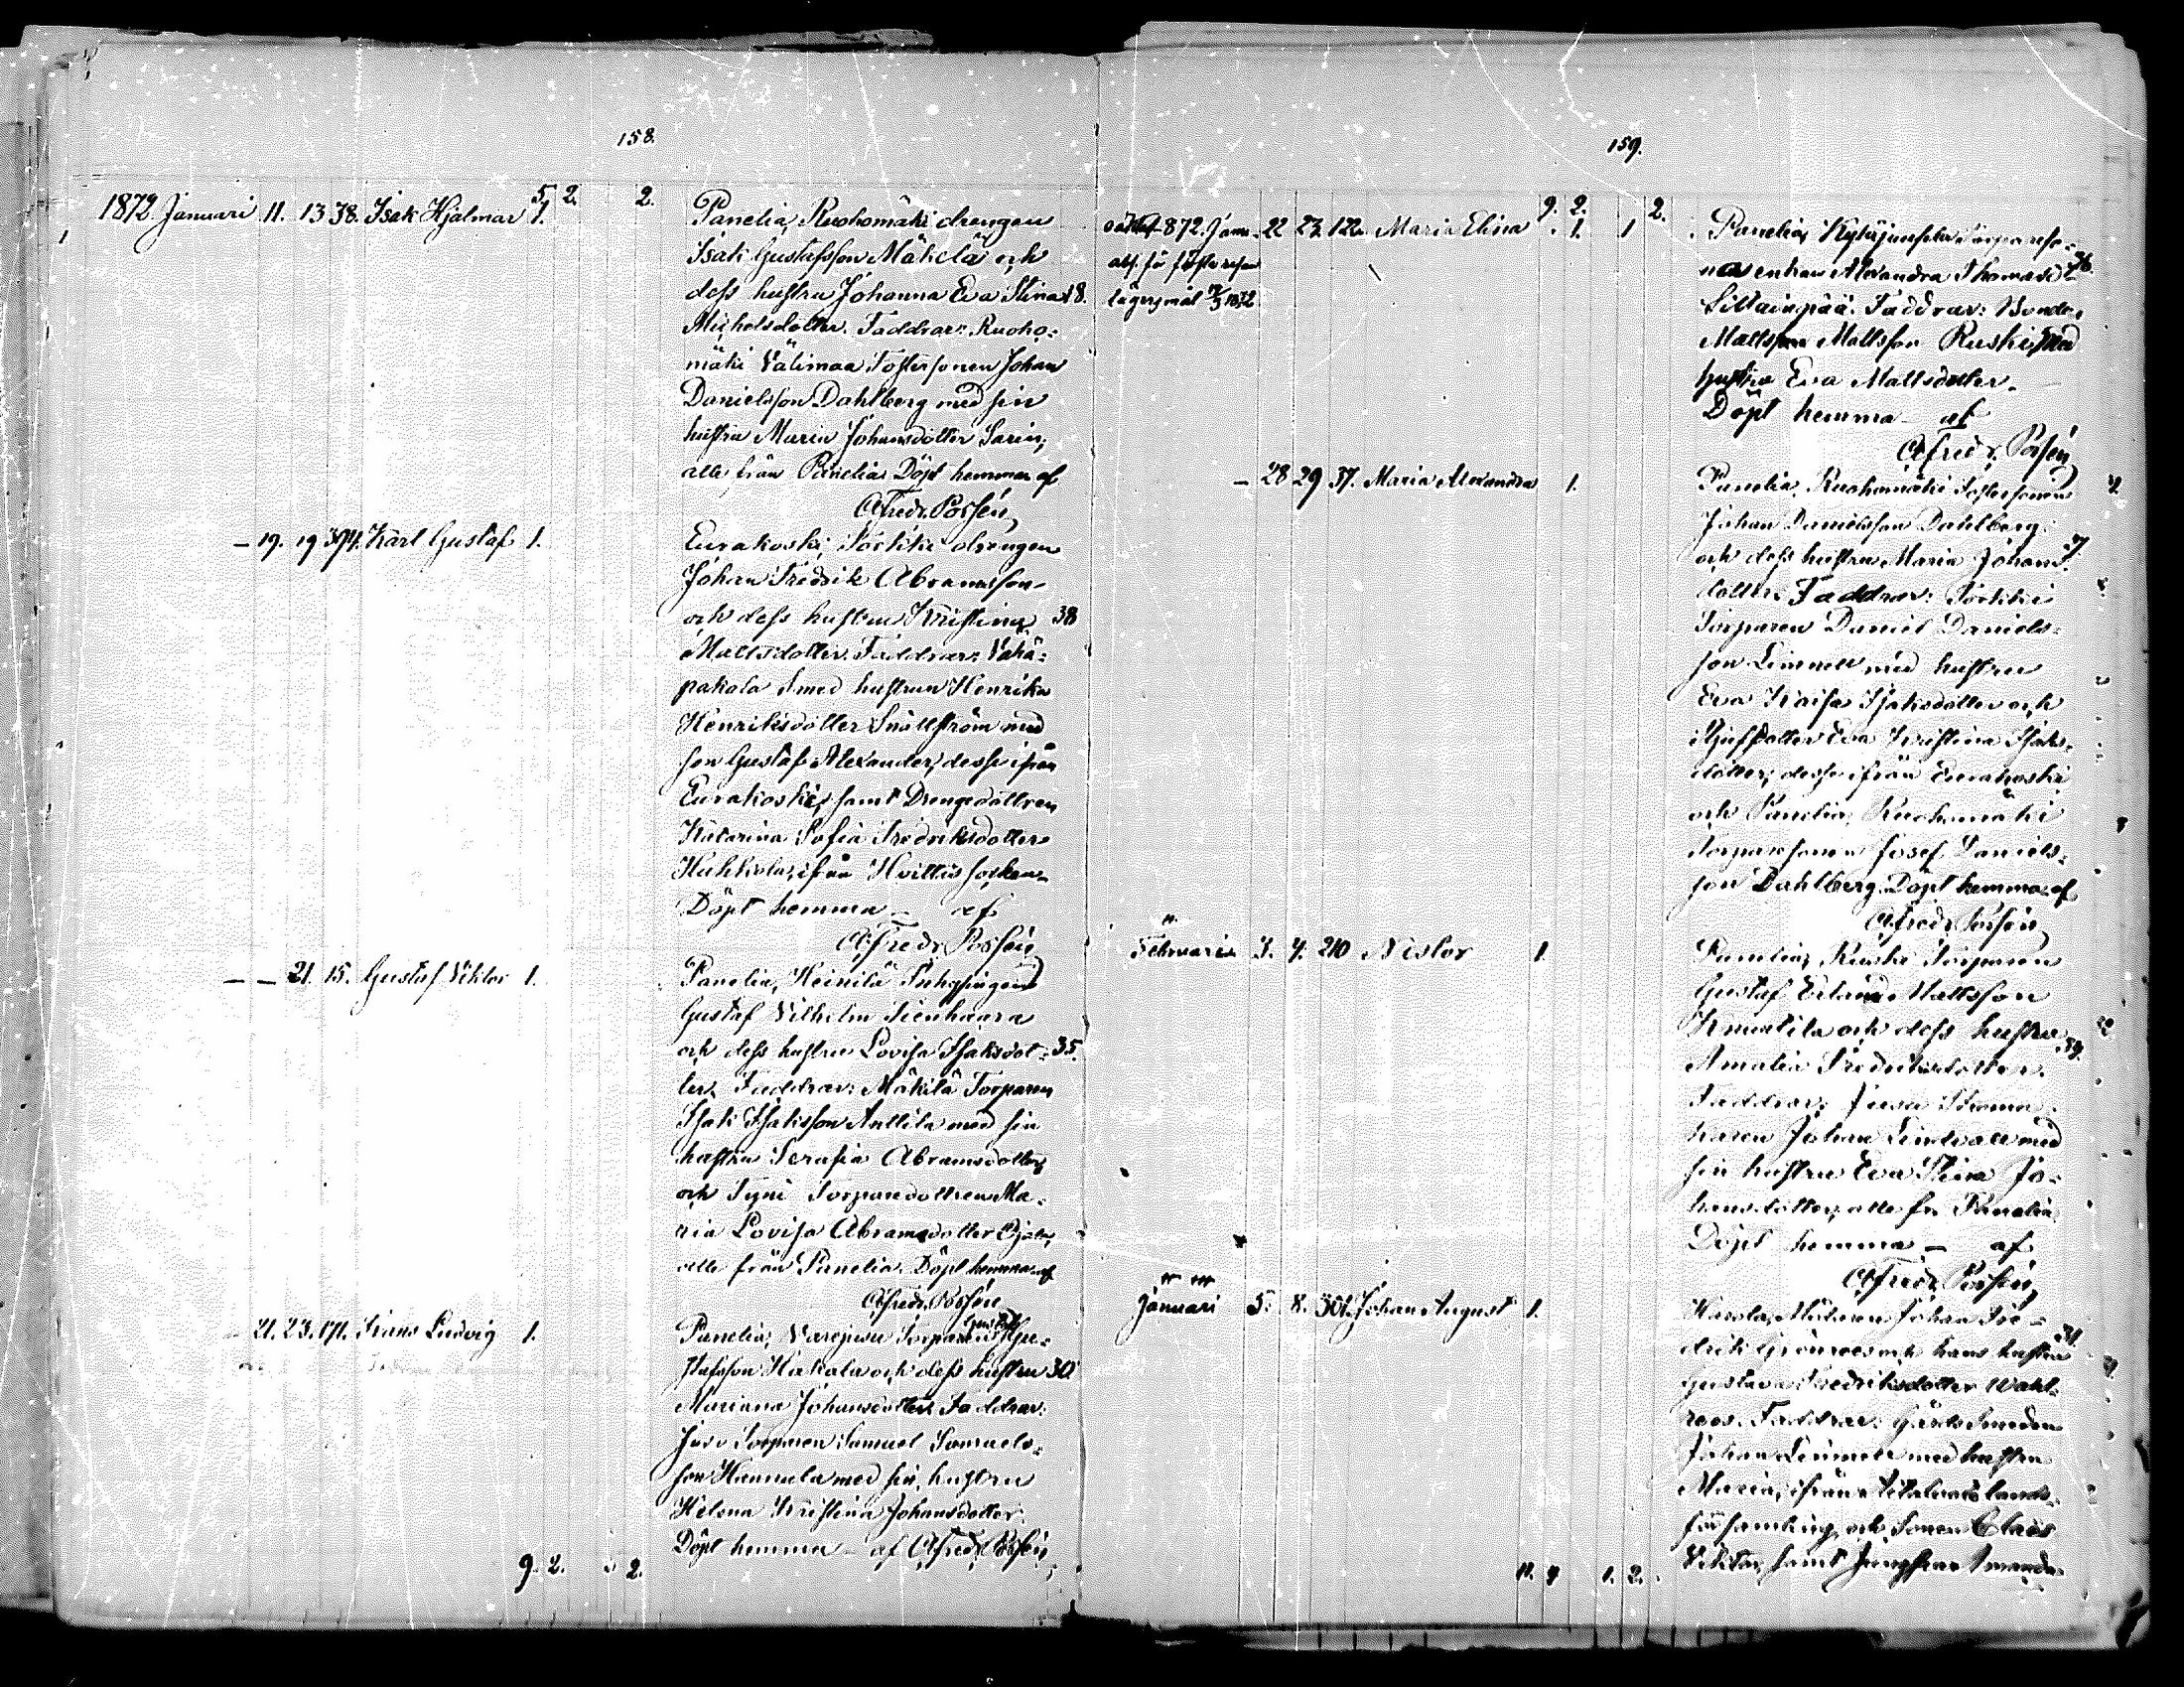 158.
5. 2. 2.
1872 Januari 11. 13 38. Isak Hjalmar 1. Panelia, Ruohomäki drengen
Isak Gustafsson Mäkelä och
dess hustru Johanna Eva Stina 18.
Michelsdotter. Faddrar: Ruoho-
mäki Välimaa Fostersonen Johan
Danielsson Dahlberg med sin
hustru Maria Johansdotter Sarin,
alla från Panelia. Döpt hemma af
Alfred Posén
— 19. 19 394. Karl Gustaf 1. Eurakoski, drengen
Johan Fredrik Abramsson
och dess hustru Kristina 38
Mattsdotter. Faddrar: Vähä-
pakola Smed hustrun Henrika
Henriksdotter Snällström med
son Gustaf Alexander, desse ifrån
Eurakoski, samt Drengedottren
Katarina Sofia Fredriksdotter
Huhkola, ifrån Hvittis socken
Döpt hemma — af
Alfred Posén
— — 21. 15. Gustaf Viktor 1. Panelia, Heinilä Inhysingen
Gustaf Vilhelm Sienhaara
och dess hustru Lovisa Isaksdot- 35.
ter. Faddrar: Mäkilä Torparen
Isak Isaksson Anttila med sin
hustru Serafia Abramsdotter
och Torparedottren Ma-
ria Lovisa Abramsdotter Ojala,
alla från Panelia. Döpt hemma af
Alfred Posén
— 21. 23. 171. Frans Ludvig 1. Panelia, Varejusu Torparen Gustaf Gu-
stafsson Hakala och dess hustru 30.
Mariana Johansdotter. Faddrar:
Juso Torparen Samuel Samuels-
son Hannula med sin hustru
Helena Kristina Johansdotter.
Döpt hemma — af Alfred Posén
9. 2. 2.
159.
9. 2. 2.
1872. Janu. 22 27. 122. Maria Elina 1. 1 Panelia,
enkan Alexandra Thomasd: 36.
Faddrar: Bonde-
Mattsson Ruski med
hustru Eva Mattsdotter.
Döpt hemma af
Alfred Posén
— 28 29 37. Maria Alexandra 1. Panelia, Ruohomäki Fostersonen
Johan Danielsson Dahlberg
och dess hustru Maria Johans-
dotter. Faddrar:
Torparen Daniel Daniels-
son med hustru
Eva Kaisa Isaksdotter och
Eva Kristina Isaks-
dotter, desse ifrån Eurakoski
och Panelia, Ruohomäki
Torparesonen Josef Daniels-
son Dahlberg. Döpt hemma af
Alfred Posén
Februari 3. 4. 210 Nestor 1. Panelia, Ruski Torparen
Gustaf Erland Mattsson
Knuutila och dess hustru 39.
Amalia Fredriksdotter.
Faddrar: Juusa
Johan Lindvall med
sin hustru Eva Stina Jo-
hansdotter, alla fr. Panelia.
Döpt hemma — af
Alfred Posén
Januari 5. 8. 301. Johan August 1. Johan Fre-
drik Grönroos och hans hustru 31.
Gustava Fredriksdotter Wahl-
roos. Faddrar: Smeden
Johan med hustru
Maria, ifrån lands-
församling, och Sonen Claës
Viktor, samt Jungfrun Amanda
11. 4 1. 2.